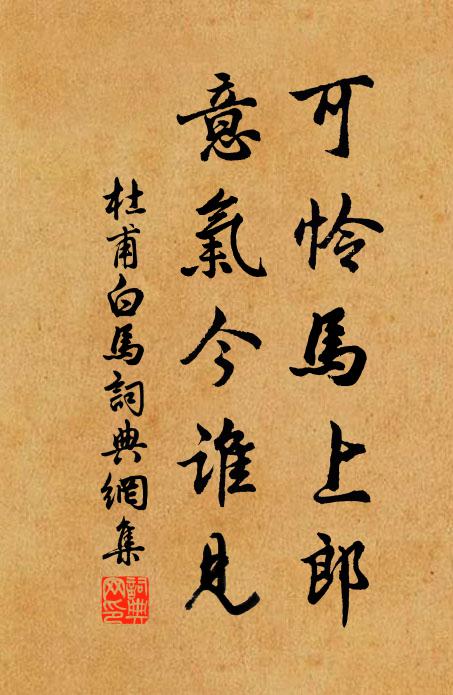 可怜馬上郎
意氣今誰見
杜甫白馬詞典網集
詞典網印